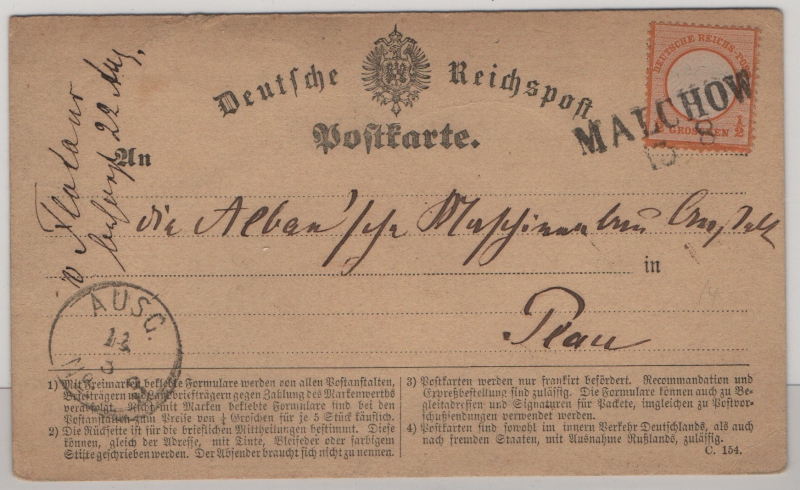 Deutsche Reichspost
DEUTSCHE REICHS-POST
½ GROSCHEN ½
MALCHOW
8
Postkarte.
An
die Alban'sche Maschinenbau Anstalt
in
Plau
v Flotow
22 Aug.
AUSG.
1) Mit Freimarken beklebte Formulare werden von allen Postanstalten,
Briefträgern und Landbriefträgern gegen Zahlung des Markenwerths
verabfolgt. Nicht mit Marken beklebte Formulare sind bei den
Postanstalten zum Preise von ¼ Groschen für je 5 Stück käuflich.
2) Die Rückseite ist für die brieflichen Mittheilungen bestimmt. Diese
können, gleich der Adresse, mit Tinte, Bleifeder oder farbigem
Stifte geschrieben werden. Der Absender braucht sich nicht zu nennen.
3) Postkarten werden nur frankirt befördert. Recommandation und
Expreßbestellung sind zulässig. Die Formulare können auch zu Be-
gleitadressen und Signaturen für Packete, imgleichen zu Postvor-
schußsendungen verwendet werden.
4) Postkarten sind sowohl im innern Verkehr Deutschlands, als auch
nach fremden Staaten, mit Ausnahme Rußlands, zulässig.
C. 154.